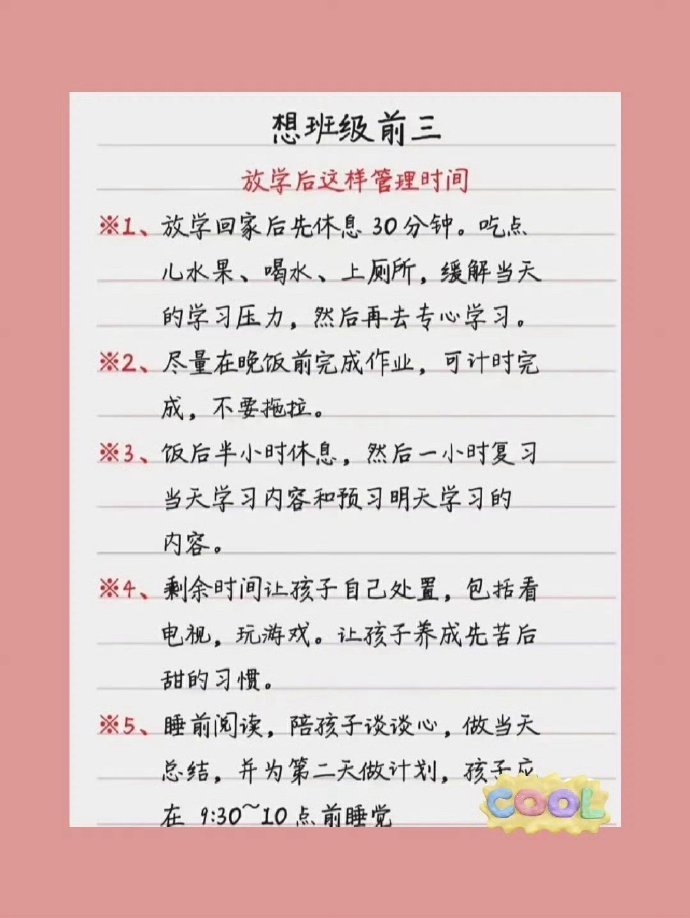 想班级前三
放学后这样管理时间
※1、放学回家后先休息 30 分钟。吃点
儿水果、喝水、上厕所，缓解当天
的学习压力，然后再去专心学习。
※2、尽量在晚饭前完成作业，可计时完
成，不要拖拉。
※3、饭后半小时休息，然后一小时复习
当天学习内容和预习明天学习的
内容。
※4、剩余时间让孩子自己处置，包括看
电视，玩游戏。让孩子养成先苦后
甜的习惯。
※5、睡前阅读，陪孩子谈谈心，做当天
总结，并为第二天做计划，孩子应
在 9:30~10 点前睡觉
COOL